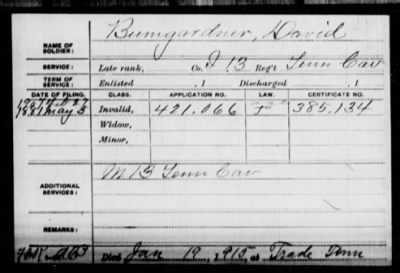 Bumgardner, David
NAME OF SOLDIER:
SERVICE: Late rank, Co. I 13 Reg't Tenn Cav
TERM OF SERVICE: Enlisted , 1 Discharged , 1
DATE OF FILING. CLASS. APPLICATION NO. LAW. CERTIFICATE NO.
1881 May 3 Invalid, 421.066 385.134
Widow,
Minor,
ADDITIONAL SERVICES: M 13 Tenn Cav
REMARKS:
Died Jan 19, 1915, at Trade Tenn